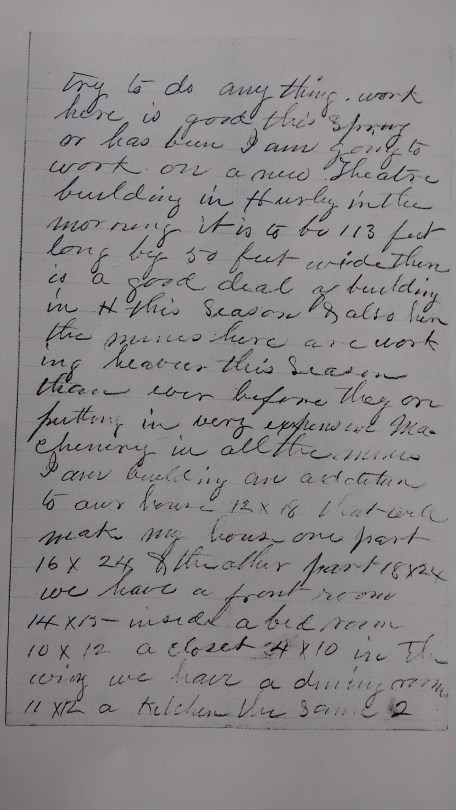 try to do any thing. work
here is good this Spring
or has been I am going to
work on a new Theatre
building in Hurley in the
morning it is to be 113 feet
long by 50 feet wide there
is a good deal of building
in H this Season & also here
the mines here are work
ing heavier this Season
than ever before they are
putting in very expensive Ma
chenery in all the mines
I am building an addition
to our house 12 x 18 that will
make my house one part
16 x 24 & the other part 18 x 24
we have a front room
14 x 15 inside a bed room
10 x 12 a closet 4 x 10 in the
wing we have a dining room
11 x 12 a Kitchen the same 2